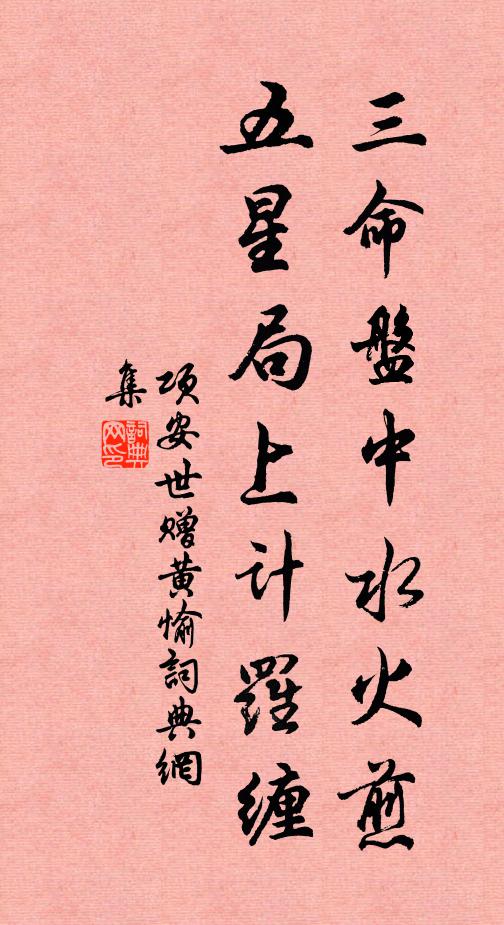 三命盤中水火煎
五星局上计羅缠
项安世赠黄愉詞典網
集
詞典
网印